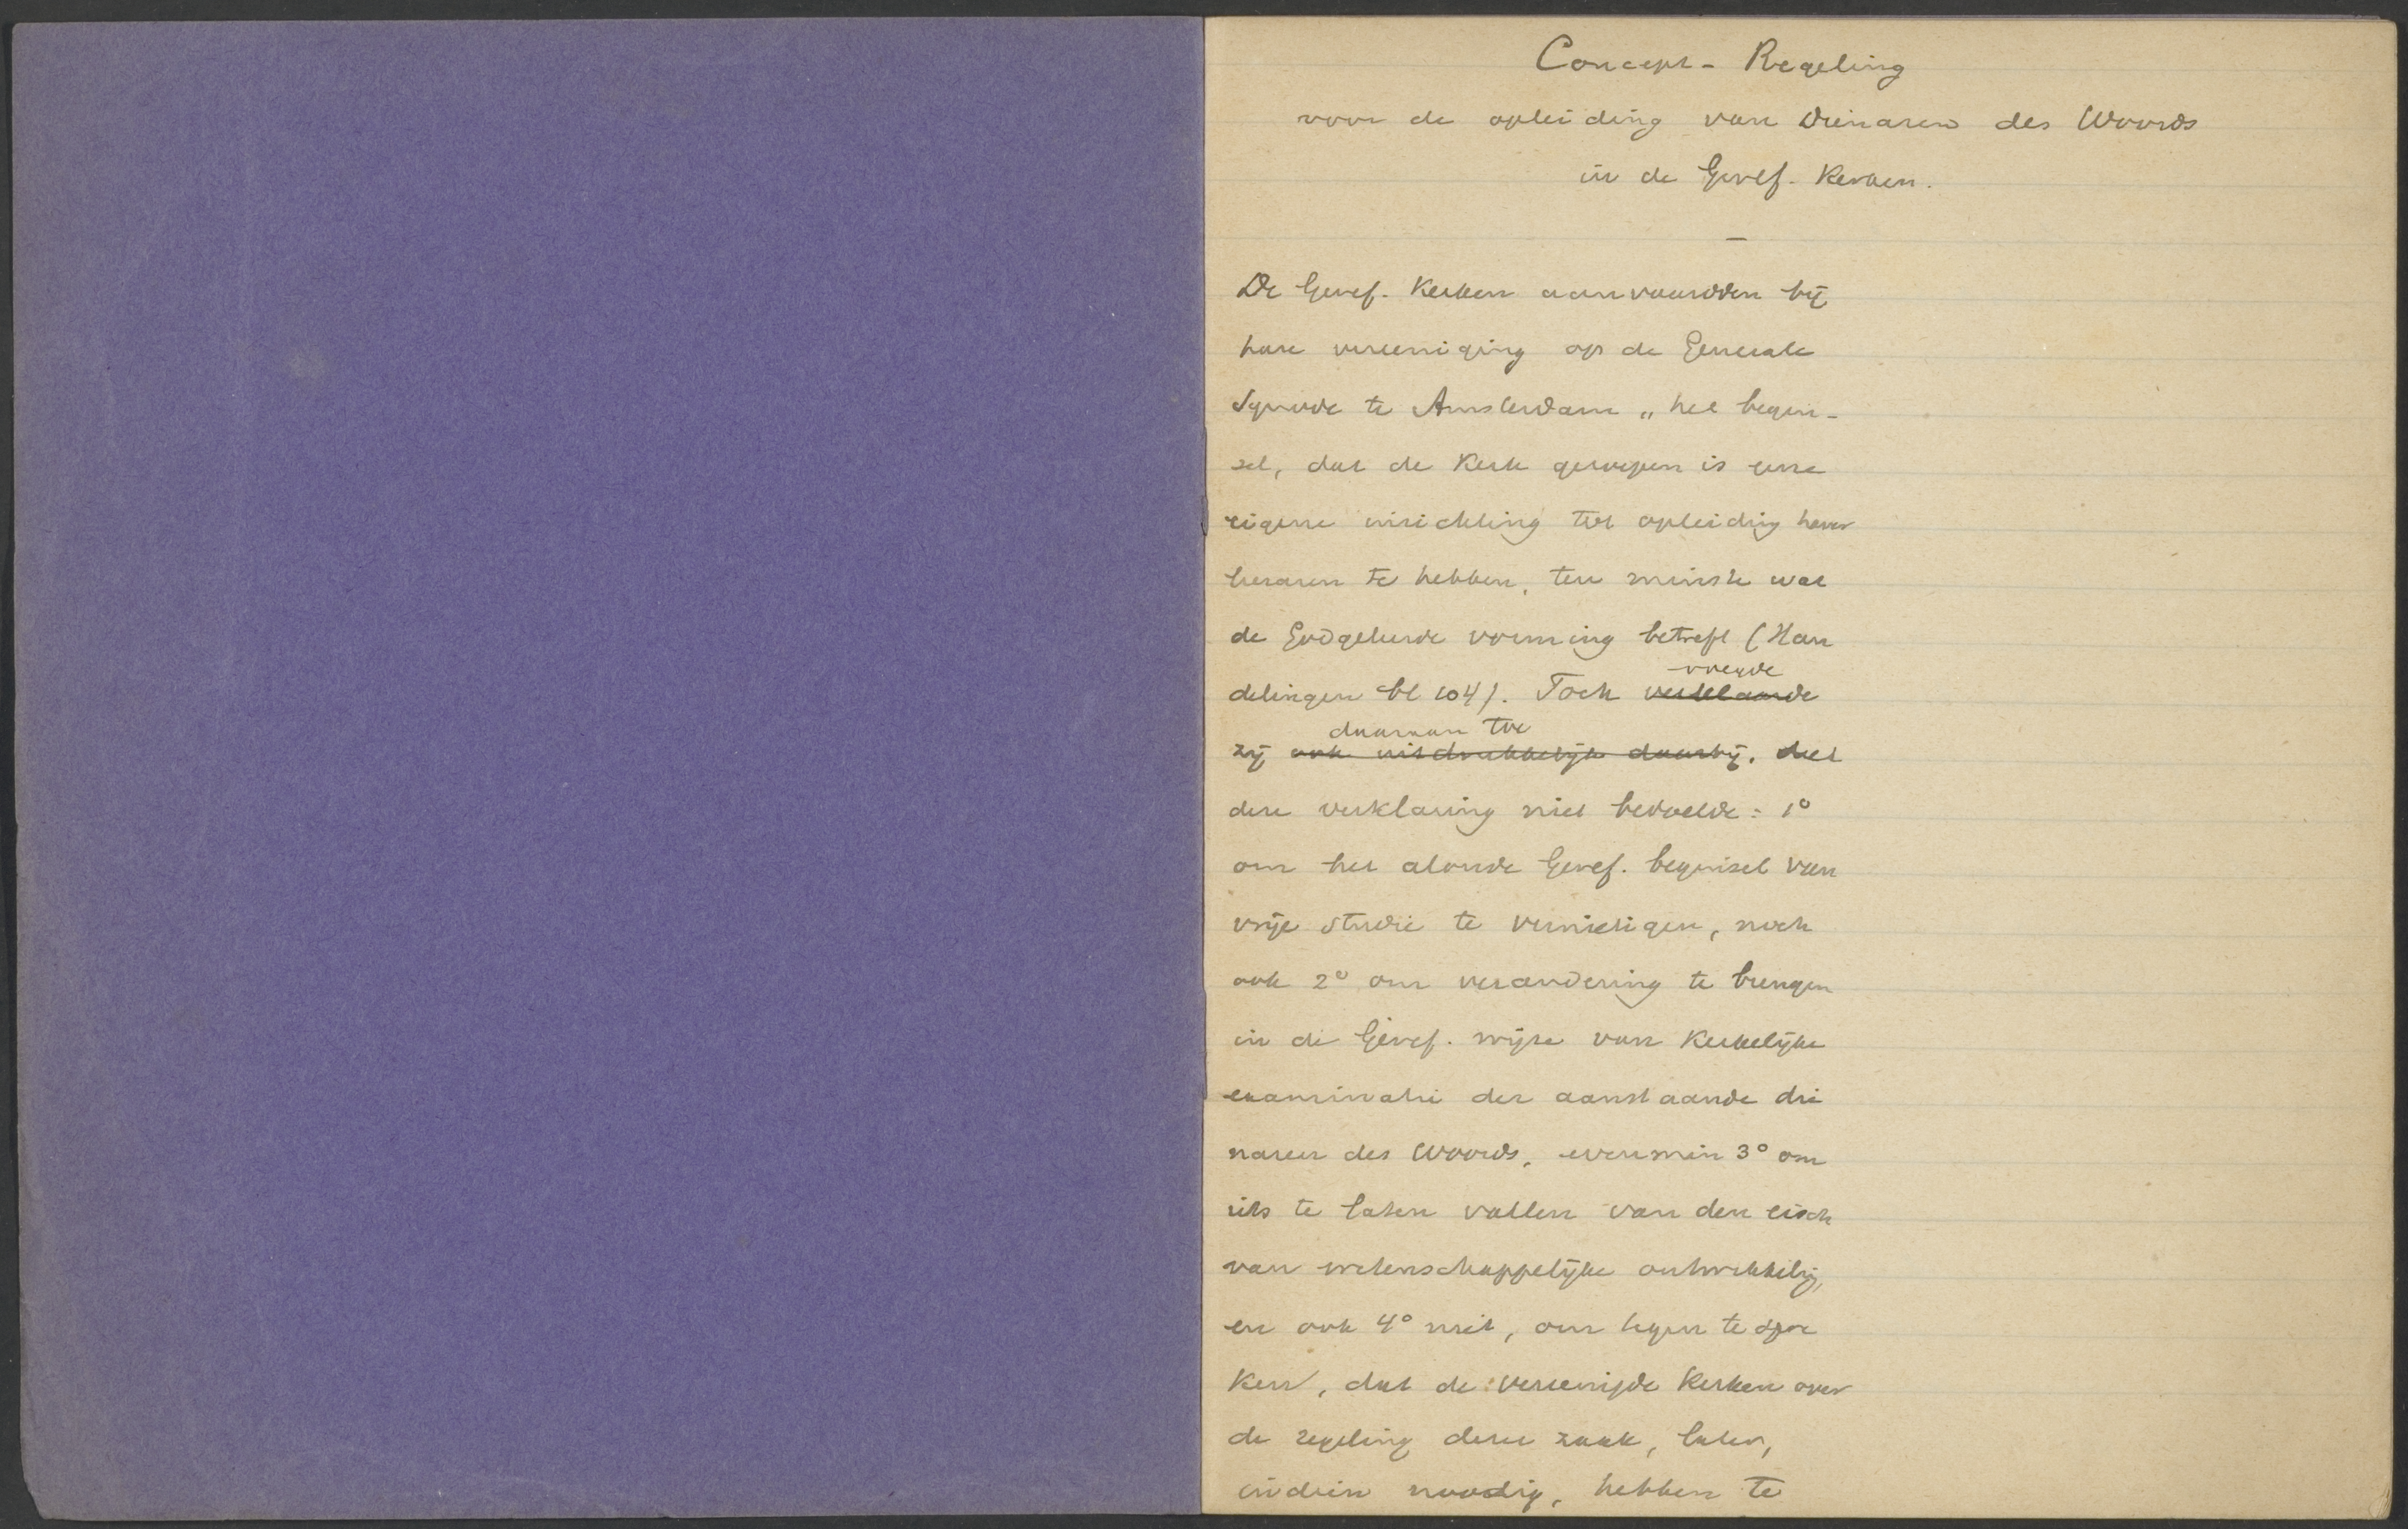 Concept - Regeling
voor de opleiding van Dienaren des Woords
in de Geref. Kerken.
—
De Geref. Kerken aanvaardden bij
hare vereeniging op de Generale
Synode te Amsterdam „het begin-
sel, dat de Kerk geroepen is eene
eigene inrichting tot opleiding harer
leeraren te hebben, ten minste wat
de Godgeleerde vorming betreft (Han
delingen bl 104). Toch verklaarde
voegde
zij ook uitdrukkelijk daarbij, dat
daaraan toe
deze verklaring niet bedoelde: 1°
om het aloude Geref. beginsel van
vrije studie te vernietigen, noch
ook 2° om verandering te brengen
in de Geref. wijze van Kerkelijke
examinatie der aanstaande die
naren des Woords, evenmin 3° om
iets te laten vallen van den eisch
van wetenschappelijke ontwikkeling,
en ook 4° niet, om tegen te spre
ken, dat de vereenigde Kerken over
de regeling dezer zaak, later,
indien noodig, hebben te